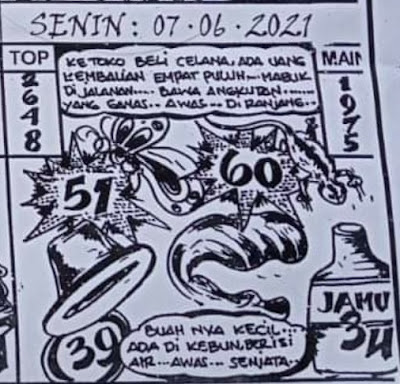 SENIN: 07·06·2021
TOP
2
6
4
8
KE TOKO BELI CELANA, ADA UANG
KEMBALIAN EMPAT PULUH... MABUK
DI JALANAN.... BAWA ANGKUTAN.......
YANG GANAS.. AWAS... DI RANJANG..
MAIN
1
9
7
5
51
60
39
BUAH NYA KECIL...
ADA DI KEBUN, BERISI
AIR...AWAS... SENJATA..
JAMU
34